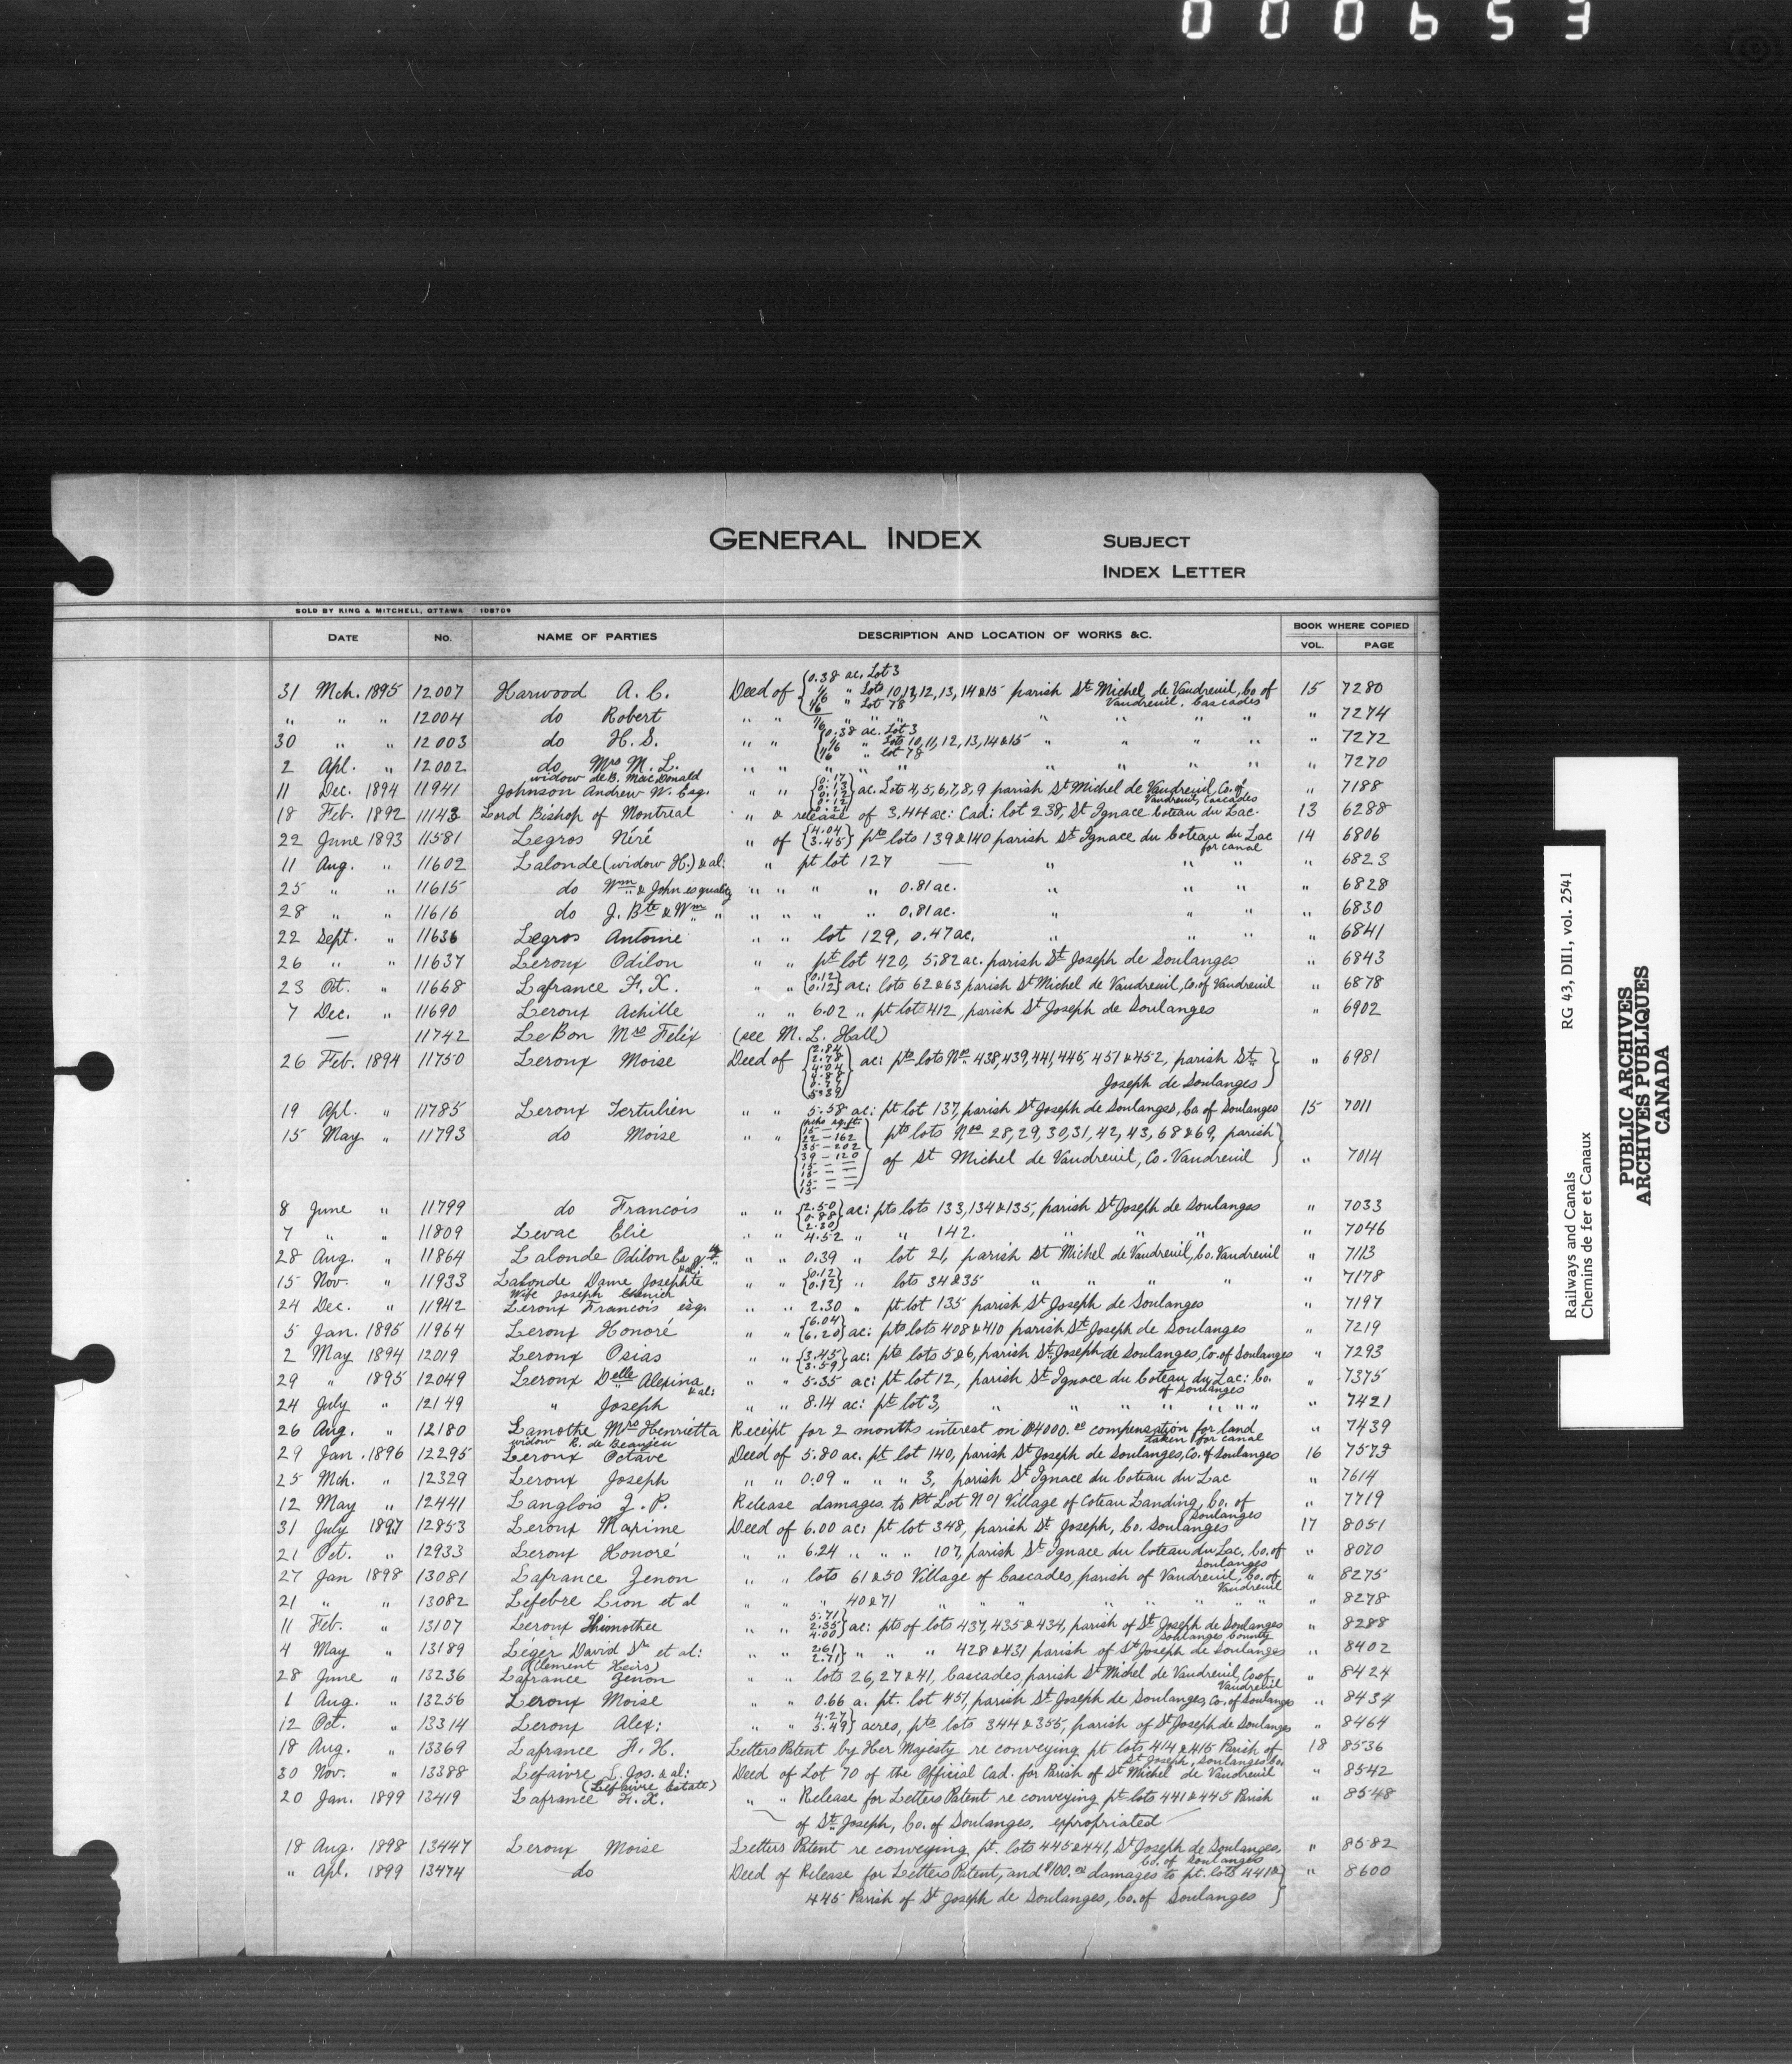 000653
GENERAL INDEX
SUBJECT
INDEX LETTER
SOLD BY KING & MITCHELL, OTTAWA 108709
DATE No. NAME OF PARTIES DESCRIPTION AND LOCATION OF WORKS &C. BOOK WHERE COPIED
VOL. PAGE
0.38 ac. Lot 3
31 Mch. 1895 12007 Harwood A. C. Deed of 1/6 " Lots 10,11,12,13,14&15 parish St Michel de Vaudreuil, Co of 15 7280
1/6 " Lot 78 Vaudreuil. Cascades
" " " 12004 do Robert " " 1/6 " " " " " " " " 7274
0.38 ac. Lot 3
30 " " 12003 do H. S. " " 1/6 " Lots 10,11,12,13,14&15 " " " " " 7272
1/6 " lot 78
2 Apl. " 12002 do Mrs M. L. " " " " " " " " " " 7270
widow de B. MacDonald
11 Dec. 1894 11941 Johnson Andrew W. Esq. " " {0.17 0.13 0.12 0.12 0.21} ac. Lots 4,5,6,7,8,9 parish St Michel de Vaudreuil Co. of " 7188
Vaudreuil, Cascades
18 Feb. 1892 11143 Lord Bishop of Montreal " & release of 3.44 ac: Cad: lot 238, St Ignace Coteau du Lac. 13 6288
22 June 1893 11581 Legros Néré " of {4.04 3.45} pts lots 139&140 parish St Ignace du Coteau du Lac 14 6806
for canal
11 Aug. " 11602 Lalonde (widow H.) & al: " pt lot 127 — " " " " 6823
25 " " 11615 do Wm & John es quality " " " " 0.81 ac. " " " " 6828
28 " " 11616 do J. Bte & Wm " " " " " 0.81 ac. " " " " 6830
22 Sept. " 11636 Legros Antoine " " lot 129, 0.47 ac. " " " " 6841
26 " " 11637 Leroux Odilon " " pt lot 420, 5.82 ac. parish St Joseph de Soulanges " 6843
23 Oct. " 11668 Lafrance F. X. " " {0.12 0.12} ac: lots 62&63 parish St Michel de Vaudreuil, Co. of Vaudreuil " 6878
7 Dec. " 11690 Leroux Achille " " 6.02 " pt lot 412, parish St Joseph de Soulanges " 6902
— 11742 LeBon Mrs Felix (see M. L. Hall)
26 Feb. 1894 11750 Leroux Moise Deed of {2.84 2.78 4.04 4.88 0.77 5.39} ac: pts lots Nos 438,439,441,445,451&452, parish St " 6981
Joseph de Soulanges
19 Apl. " 11785 Leroux Tertulien " " 5.58 ac: pt lot 137, parish St Joseph de Soulanges, Co of Soulanges 15 7011
15 May " 11793 do Moise " " pts lots Nos 28,29,30,31,42,43,68&69, parish
22 — 162
35 — 202
39 — 120
of St Michel de Vaudreuil, Co. Vaudreuil " 7014
8 June " 11799 do Francois " " {2.50 0.88 2.30} ac: pts lots 133,134&135, parish St Joseph de Soulanges " 7033
7 " " 11809 Levac Elie " " 4.52 " " 142. " " " " 7046
28 Aug. " 11864 Lalonde Odilon Es qlty & al: " " 0.39 " lot 21, parish St Michel de Vaudreuil, Co. Vaudreuil " 7113
15 Nov. " 11933 Lalonde Dame Josephte " " {0.12 0.12} " lots 34&35 " " " " " 7178
Wife Joseph
24 Dec. " 11942 Leroux Francois esq. " " 2.30 " pt lot 135 parish St Joseph de Soulanges " 7197
5 Jan. 1895 11964 Leroux Honoré " " {6.04 6.20} ac: pts lots 408&410 parish St Joseph de Soulanges " 7219
2 May 1894 12019 Leroux Osias " " {3.45 3.59} ac: pts lots 5&6, parish St Joseph de Soulanges, Co. of Soulanges " 7293
29 " 1895 12049 Leroux Delle Alexina & al: " " 5.35 ac: pt lot 12, parish St Ignace du Coteau du Lac: Co. " 7375
of Soulanges
24 July " 12149 " Joseph " " 8.14 ac: pt lot 3, " " " " " " " 7421
26 Aug. " 12180 Lamothe Mrs Henrietta Receipt for 2 months interest on $4000.00 compensation for land " 7439
widow R. de Beaujeu taken for canal
29 Jan. 1896 12295 Leroux Octave Deed of 5.80 ac. pt lot 140, parish St Joseph de Soulanges, Co. of Soulanges 16 7573
25 Mch. " 12329 Leroux Joseph " " 0.09 " " " 3, parish St Ignace du Coteau du Lac " 7614
12 May " 12441 Langlois J. P. Release damages to Pt Lot No 1 Village of Coteau Landing, Co. of " 7719
Soulanges
31 July 1897 12853 Leroux Maxime Deed of 6.00 ac: pt lot 348, parish St Joseph, Co. Soulanges 17 8051
21 Oct. " 12933 Leroux Honoré " " 6.24 " " " 107, parish St Ignace du Coteau du Lac. Co. of " 8070
Soulanges
27 Jan 1898 13081 Lafrance Zenon " " lots 61&50 Village of Cascades, parish of Vaudreuil, Co. of " 8275
Vaudreuil
21 " " 13082 Lefebre Lion et al " " " 40&71 " " " " " " " 8278
11 Feb. " 13107 Leroux Thimothee " " {5.71 2.35 4.00} ac: pts of lots 437,435&434, parish of St Joseph de Soulanges " 8288
Soulanges County
4 May " 13189 Léger David Sr et al: " " {2.61 2.71} " " " 428&431 parish of St Joseph de Soulanges " 8402
(Clement Heirs)
28 June " 13236 Lafrance Zenon " " lots 26,27&41, Cascades, parish St Michel de Vaudreuil, Co of " 8424
Vaudreuil
1 Aug. " 13256 Leroux Moise " " 0.66 a. pt. lot 451, parish St Joseph de Soulanges, Co. of Soulanges " 8434
12 Oct. " 13314 Leroux Alex: " " {4.27 5.49} acres, pts lots 344&355, parish of St Joseph de Soulanges " 8464
18 Aug. " 13369 Lafrance F. H. Letters Patent by Her Majesty re conveying pt lots 414&415 Parish of 18 8536
St Joseph, Soulanges Co.
30 Nov. " 13388 Lefaivre L. Jos. & al: Deed of Lot 70 of the Official Cad. for Parish of St Michel de Vaudreuil " 8542
(Lefaivre Estate)
20 Jan. 1899 13419 Lafrance F. X. " " Release for Letters Patent re conveying pt lots 441&445 Parish " 8548
of St Joseph, Co. of Soulanges, expropriated
18 Aug. 1898 13447 Leroux Moise Letters Patent re conveying pt. lots 445&441, St Joseph de Soulanges, " 8582
Co. of Soulanges
" Apl. 1899 13474 do Deed of Release for Letters Patent, and $100.00 damages to pt. lots 441& " 8600
445 Parish of St Joseph de Soulanges, Co. of Soulanges
Railways and Canals RG 43, DIII1, vol. 2541
Chemins de fer et Canaux
PUBLIC ARCHIVES
ARCHIVES PUBLIQUES
CANADA